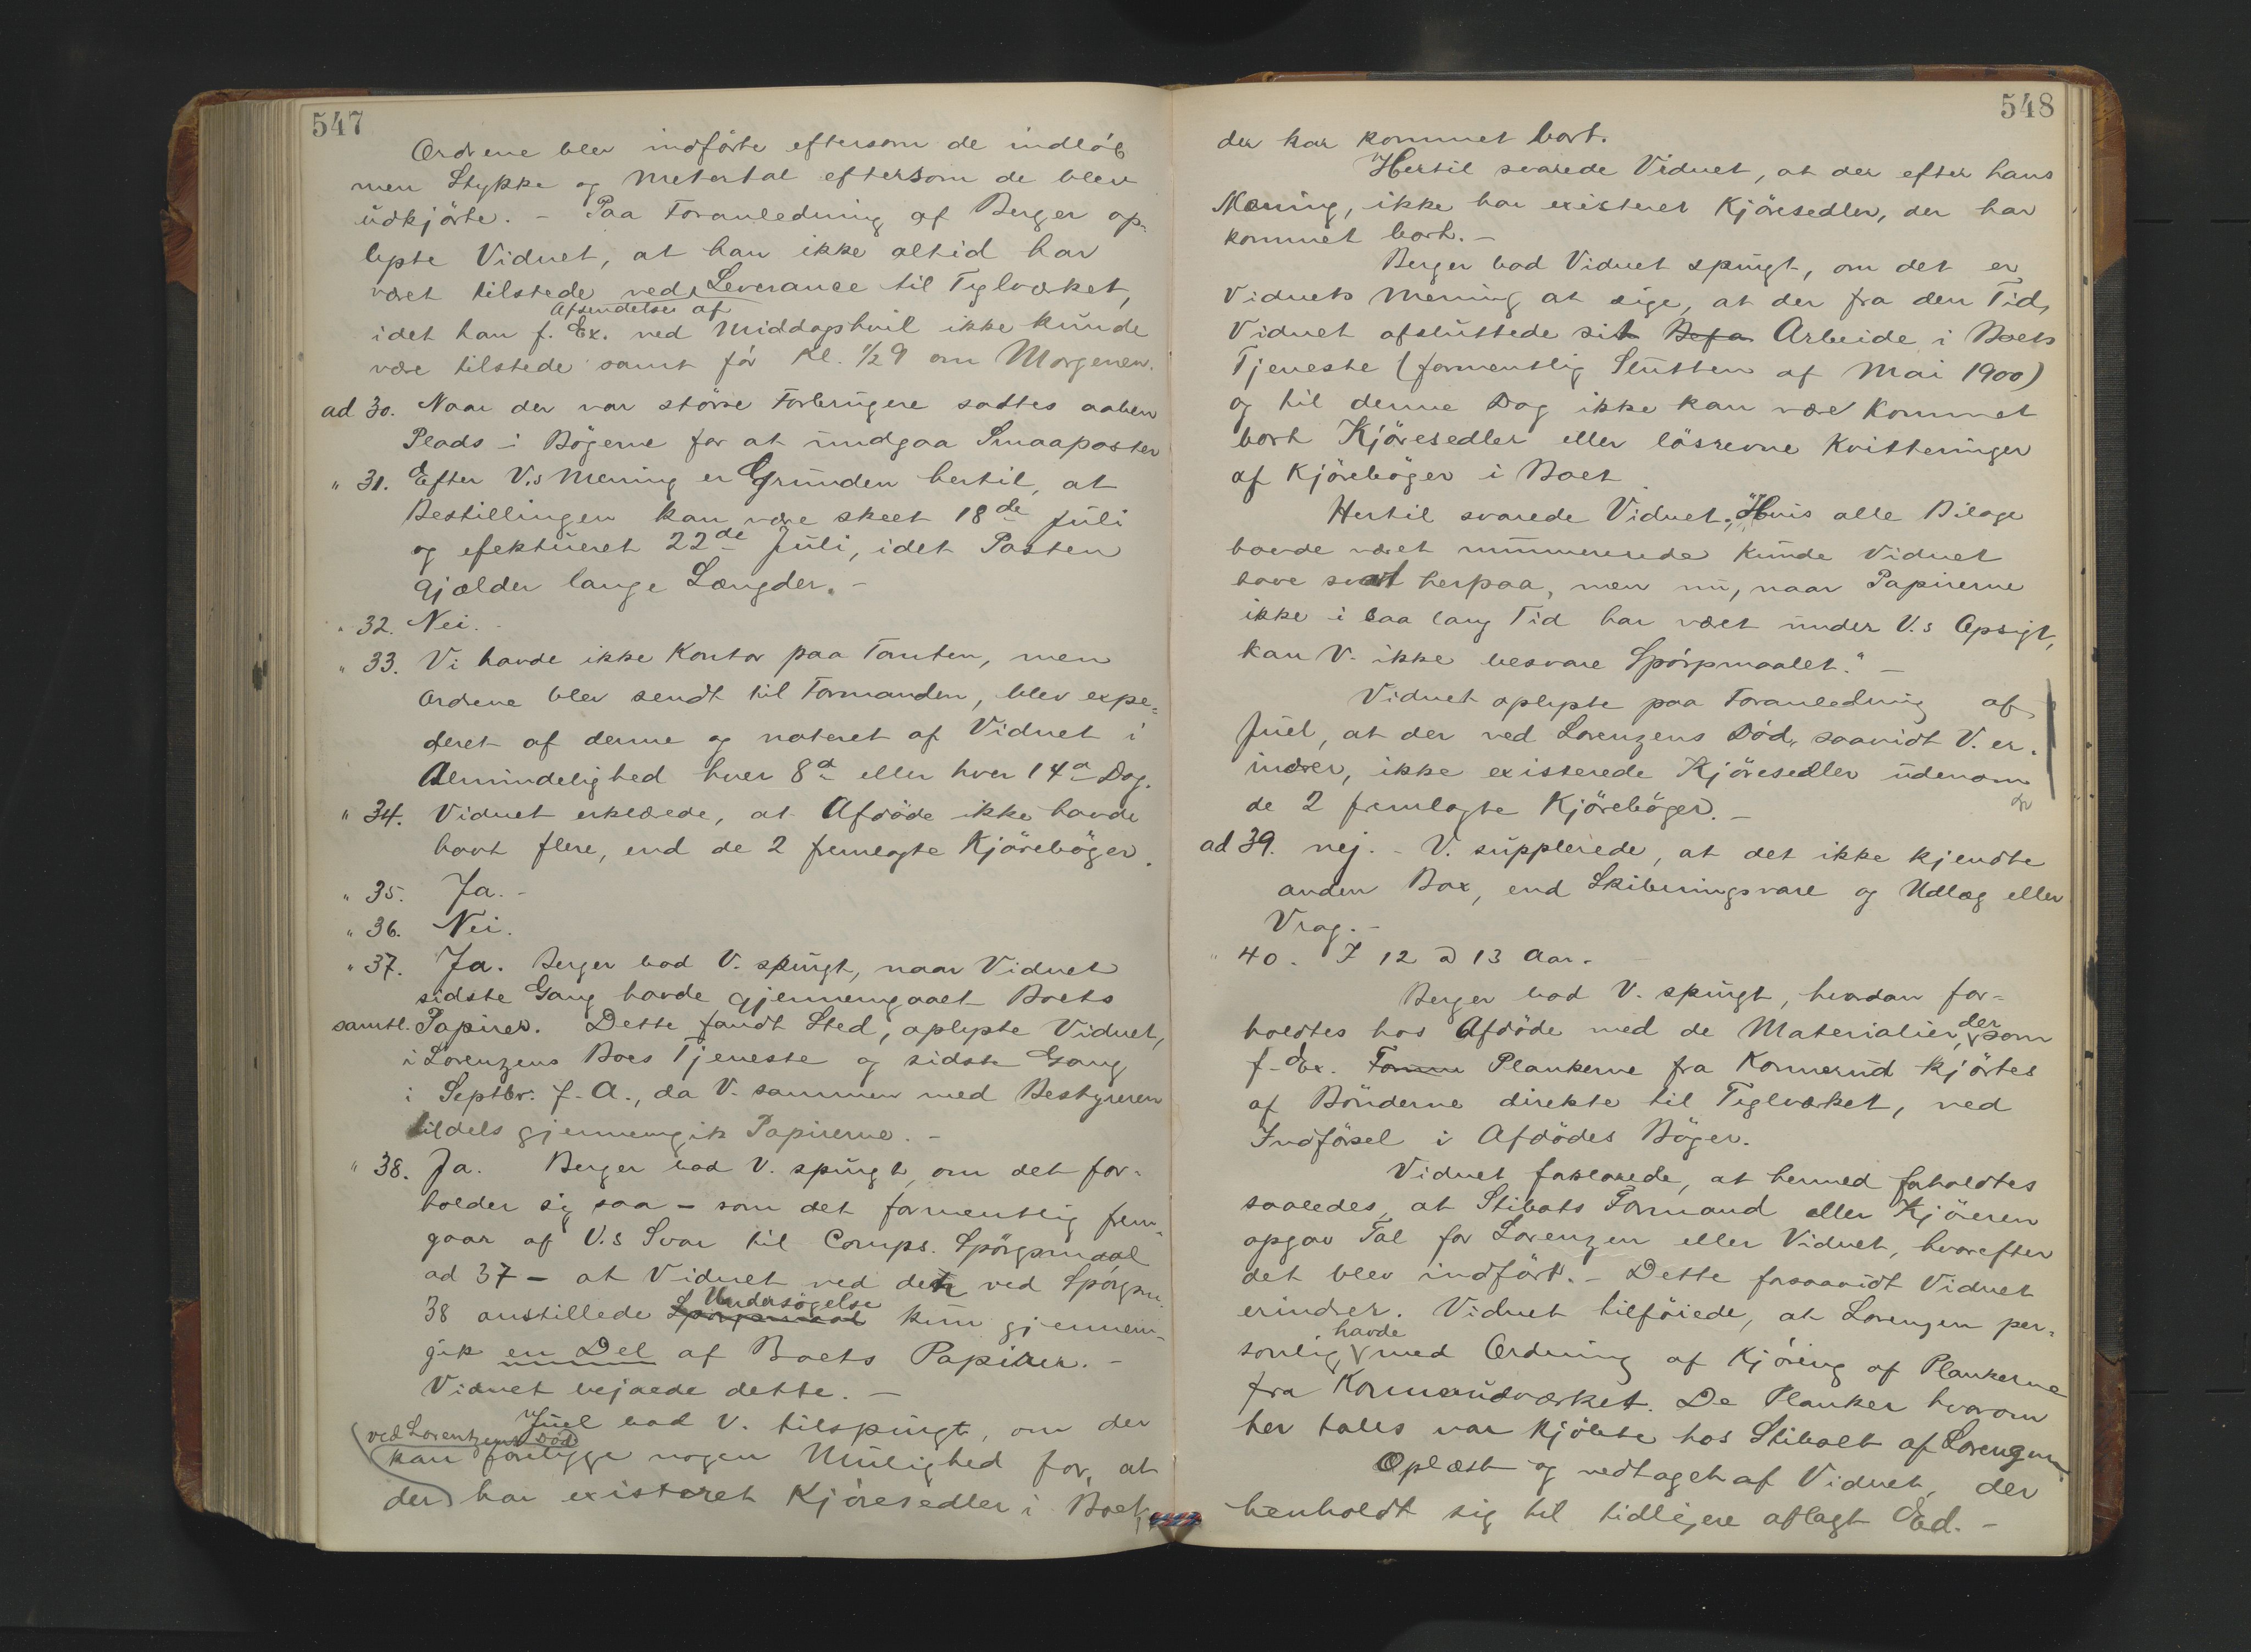 547
Ordrene blev indførte eftersom de indløb
men Stykke og Metertal eftersom de blev
udkjørte. - Paa Foranledning af Berger op-
lyste Vidnet, at han ikke altid har
været tilstede ved Leverance til Teglværket,
Afsendelse af
idet han f. Ex. ved Middagshvil ikke kunde
være tilstede samt før Kl. 1/2 9 om Morgenen.
ad 30. Naar der var større Forbrugere sattes aaben
Plads i Bøgerne for at undgaa Smaaposter
" 31. Efter V.s Mening er Grunden hertil, at
Bestillingen kan være skeet 18de Juli
og efektueret 22de Juli, idet Posten
gjælder lange Længder. -
" 32. Nei. -
" 33. Vi havde ikke Kontor paa Tomten, men
Ordrene blev sendt til Formanden, blev expe-
deret af denne og noteret af Vidnet i
Almindelighed hver 8d eller hver 14d Dag.
" 34. Vidnet erklærede, at Afdøde ikke havde
havt flere, end de 2 fremlagte Kjørebøger.
" 35. Ja. -
" 36. Nei.
" 37. Ja. Berger bad V. spurgt, naar Vidnet
sidste Gang havde gjennemgaaet Boets
samtl. Papirer. Dette fandt Sted, oplyste Vidnet,
i Lorenzens Boes Tjeneste og sidste Gang
i Septbr. f. A., da V. sammen med Bestyreren
tildels gjennemgik Papirerne. -
" 38. Ja. Berger bad V. spurgt, om det for-
holder sig saa - som det formentlig frem-
gaar af V.s Svar til Comps. Spørgsmaal
ad 37 - at Vidnet ved den ved Spørgsm.
38 anstillede Spørgsmaal Undersøgelse kun gjennem-
gik en Del af Boets Papirer. -
Vidnet bejaede dette. -
Juel bad V. tilspurgt, om der
ved Lorentzens Død
kan foreligge nogen Mulighed for, at
der har existeret Kjøresedler i Boet,
548
der har kommet bort.
Hertil svarede Vidnet, at der efter hans
Mening, ikke har existeret Kjøresedler, der har
kommet bort. -
Berger bad Vidnet spurgt, om det er
Vidnets Mening at sige, at der fra den Tid,
Vidnet afsluttede sit Arbeide i Boets
Tjeneste (formentlig Slutten af Mai 1900)
og til denne Dag ikke kan være kommet
bort Kjøresedler eller løsrevne Kvitteringer
af Kjørebøger i Boet.
Hertil svarede Vidnet: "Hvis alle Bilage
havde været nummererede kunde Vidnet
have svart herpaa, men nu, naar Papirerne
ikke i saa lang Tid har været under V.s Opsigt,
kan V. ikke besvare Spørgsmaalet." -
Vidnet oplyste paa Foranledning af
Juel, at der ved Lorenzens Død, saavidt V. er-
indrer, ikke existerede Kjøresedler udenom
de 2 fremlagte Kjørebøger. -
ad 39. nej. - V. supplerede, at det ikke kjendte
anden Box, end Skibningsvare og Udlæg eller
Vrag. -
" 40. I 12 à 13 Aar. -
Berger bad V. spurgt, hvordan for-
holdtes hos Afdøde med de Materialier, der som
f. Ex. Plankerne fra Konnerud kjørtes
af Bønderne direkte til Teglværket, ved
Indførsel i Afdødes Bøger.
Vidnet forklarede, at hermed forholdtes
saaledes, at Stibolts Formand eller Kjøreren
opgav Tal for Lorenzen eller Vidnet, hvorefter
det blev indført. - Dette forsaavidt Vidnet
erindrer. Vidnet tilføiede, at Lorenzen per-
sonlig havde med Ordning af Kjøring af Plankerne
fra Konnerudværket. De Planker hvorom
her tales var kjøbte hos Stibolt af Lorenzen.
Oplæst og vedtaget af Vidnet, der
henholdt sig til tidligere aflagt Ed. -